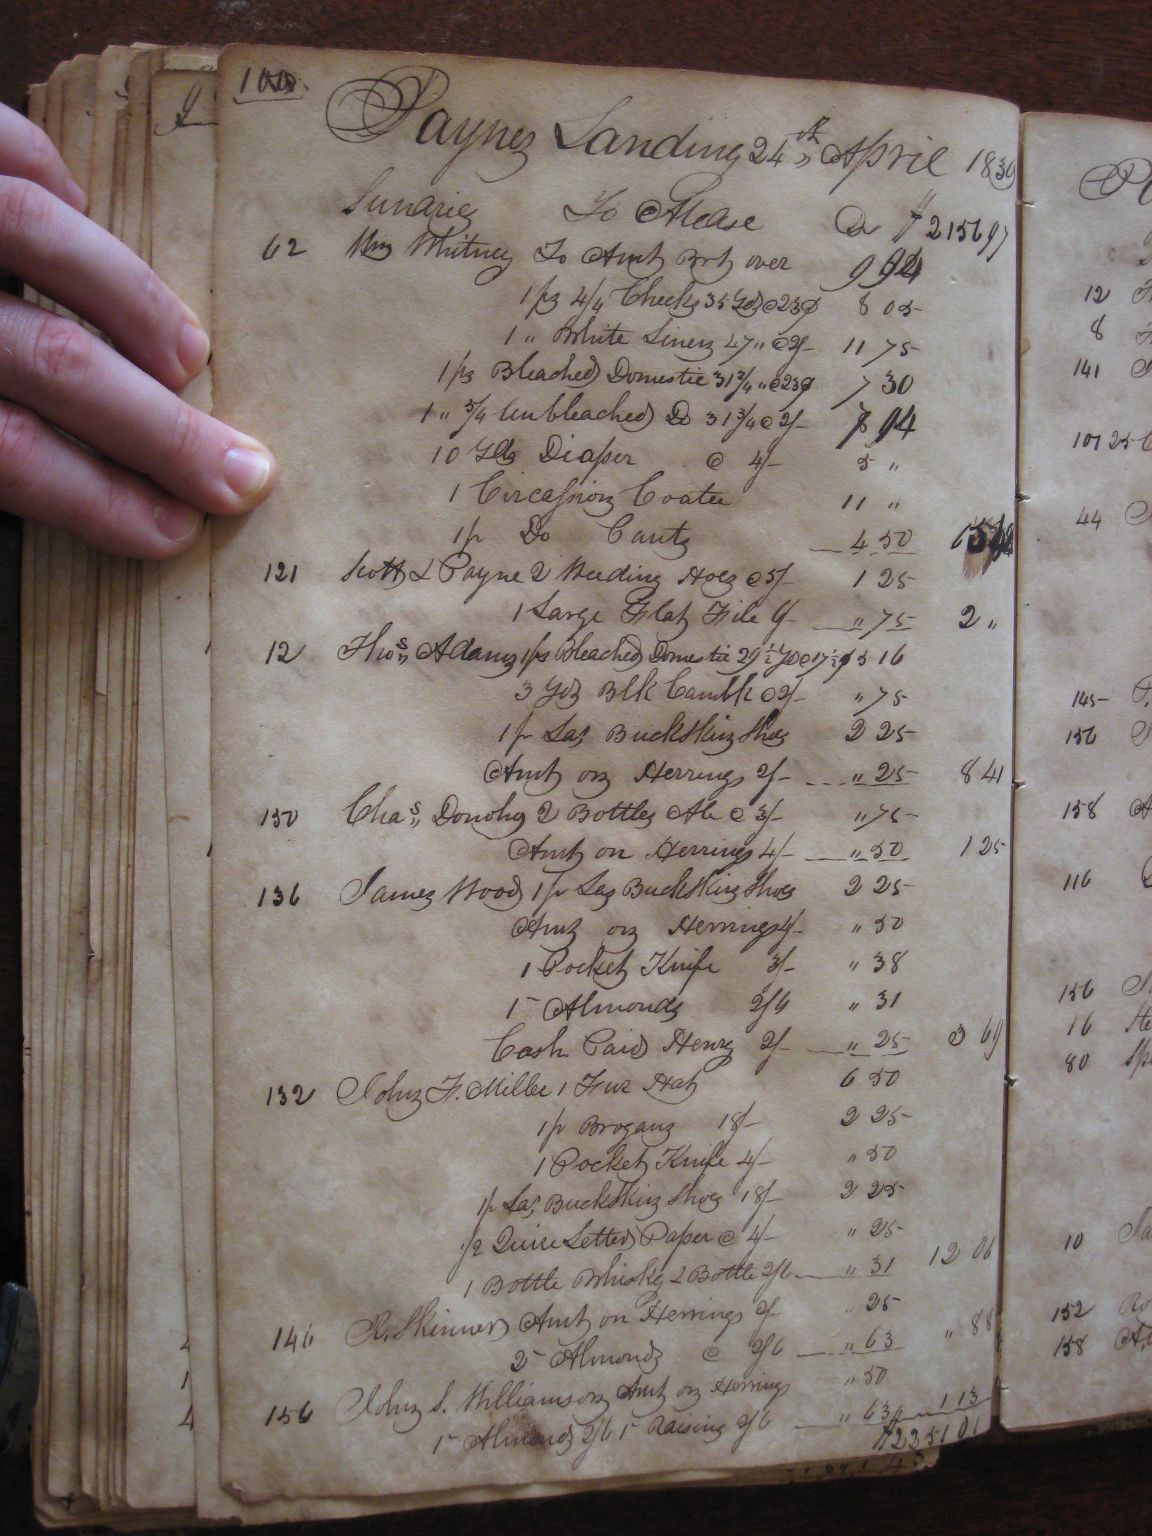 100
Paynes Landing 24th April 1830
Sundries To Mdse Dr $ 2156 97
62 Wm Whitney To Amt Brt over 9 94
1 ps 4/4 Checks 35 Yds @ 23¢ 8 05
1 " White Linen 47 " @ 2/- 11 75
1 ps Bleached Domestic 31 3/4 " @ 23¢ 7 30
1 " 3/4 Unbleached Do 31 3/4 @ 2/- 7 94
10 Yds Diaper @ 4/- 5 "
1 Circassion Coatee 11 "
1 pr Do Pants 4 50
121 Scott & Payne 2 Weeding Hoes @ 5/- 1 25
1 Large Flat File 6/- " 75 2 "
12 Thos Adams 1 ps Bleached Domestic 29 1/2 Yds @ 17 1/2¢ 5 16
3 Yds Blk Cambk @ 2/- " 75
1 pr Las Buckskin Shoes 2 25
Amt on Herrings 2/- " 25 8 41
150 Chas Donohy 2 Bottles Ale @ 3/- " 75
Amt on Herrings 4/- " 50 1 25
136 James Wood 1 pr Las Buckskin Shoes 2 25
Amt on Herrings 4/- " 50
1 Pocket Knife 3/- " 38
1 - Almonds 2/6 " 31
Cash Paid Henry 2/- " 25 3 69
132 John F. Miller 1 Fur Hat 6 50
1 pr Brogans 18/- 2 25
1 Pocket Knife 4/- " 50
1 pr Las Buckskin Shoes 18/- 2 25
1/2 Quire Letter Paper @ 4/- " 25
1 Bottle Whisky & Bottle 2/6 " 31 12 06
146 R. Skinner Amt on Herrings 2/- " 25
2 - Almonds @ 2/6 " 63 " 88
156 John S. Williamson Amt on Herrings " 50
1 - Almonds 2/6 1 - Raisins 2/6 " 63 1 13
$2251 01
12
8
141
107 25
44
145
156
158
116
156
16
80
10
152
158